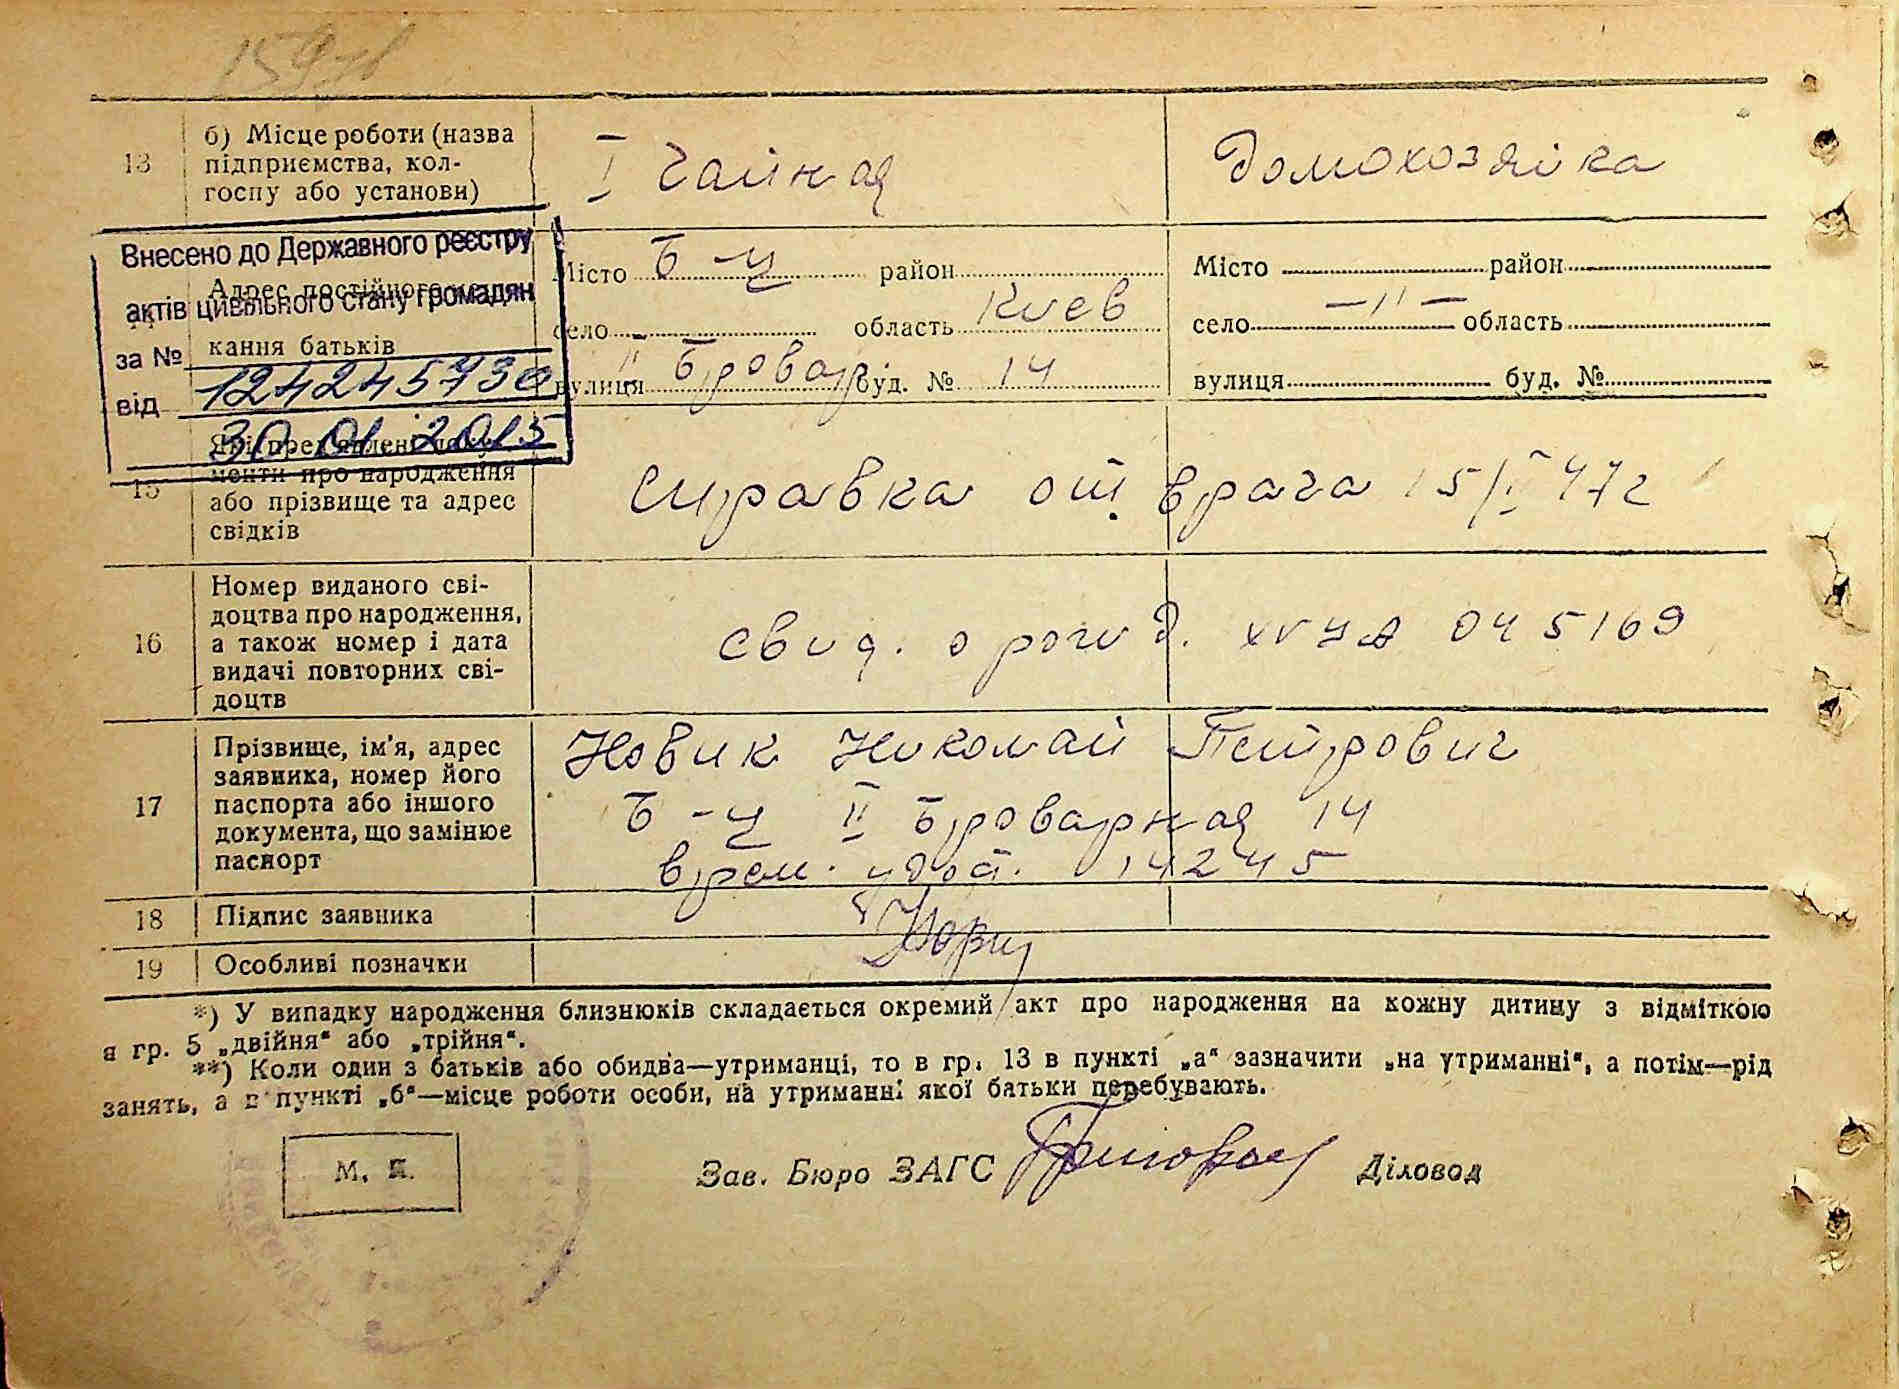 13 б) Місце роботи (назва підприємства, колгоспу або установи) I чайная Домохозяйка
Внесено до Державного реєстру
актів цивільного стану громадян
за № 124245730
від 30 01 2015
Адрес постійного
кання батьків
Місто Б-Ц район
село область Киев
вулиця II Бровар. буд. № 14
Місто район
село —"— область
вулиця буд. №
15 Які пред'явлені документи про народження
або прізвище та адрес
свідків
Справка от врача 15/I 47г
16 Номер виданого сві-
доцтва про народження,
а також номер і дата
видачі повторних сві-
доцтв
свид. о рожд. 045169
17 Прізвище, ім'я, адрес
заявника, номер його
паспорта або іншого
документа, що замінює
паспорт
Новик Николай Петрович
Б-Ц II Броварная 14
врем. удост. 14245
18 Підпис заявника
19 Особливі позначки
*) У випадку народження близнюків складається окремий акт про народження на кожну дитину з відміткою
в гр. 5 „двійня“ або „трійня“.
**) Коли один з батьків або обидва—утриманці, то в гр. 13 в пункті „а“ зазначити „на утриманні“, а потім—рід
занять, а в пункті „б“—місце роботи особи, на утриманні якої батьки перебувають.
М. П.
Зав. Бюро ЗАГС Діловод